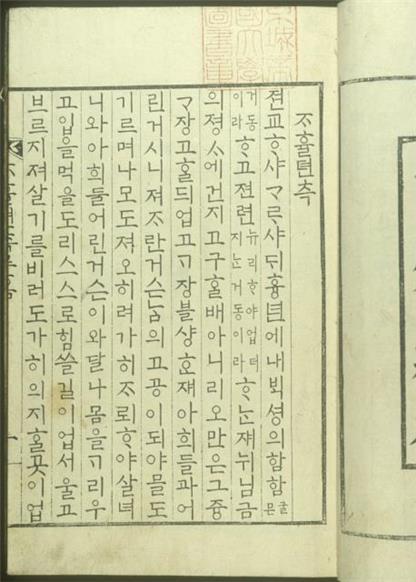 ᄌᆞ휼뎐측
젼교ᄒᆞ샤ᄀᆞᄅᆞ샤ᄃᆡ흉년에내ᄇᆡᆨ셩의함함굴믄
거동이라ᄒᆞ고젼련뉴리ᄒᆞ야업더지ᄂᆞᆫ거동이라ᄒᆞᄂᆞᆫ쟤뉘님금
의졍ᄉᆞ에건지고구홀배아니리오만은그즁
ᄀᆞ장고홀ᄃᆡ업고ᄀᆞ장블샹ᄒᆞᆫ쟤아희들과어
린거시니져ᄌᆞ란거슨ᄂᆞᆷ의고공이되야믈도
기르며나모도져오히려가히ᄌᆞ뢰ᄒᆞ야살녀
니와아희들어린거슨이와달나몸을ᄀᆞ리우
고입을먹을도리스스로힘쓸길이업서울고
브르지져살기를비러도가히의지홀곳이업